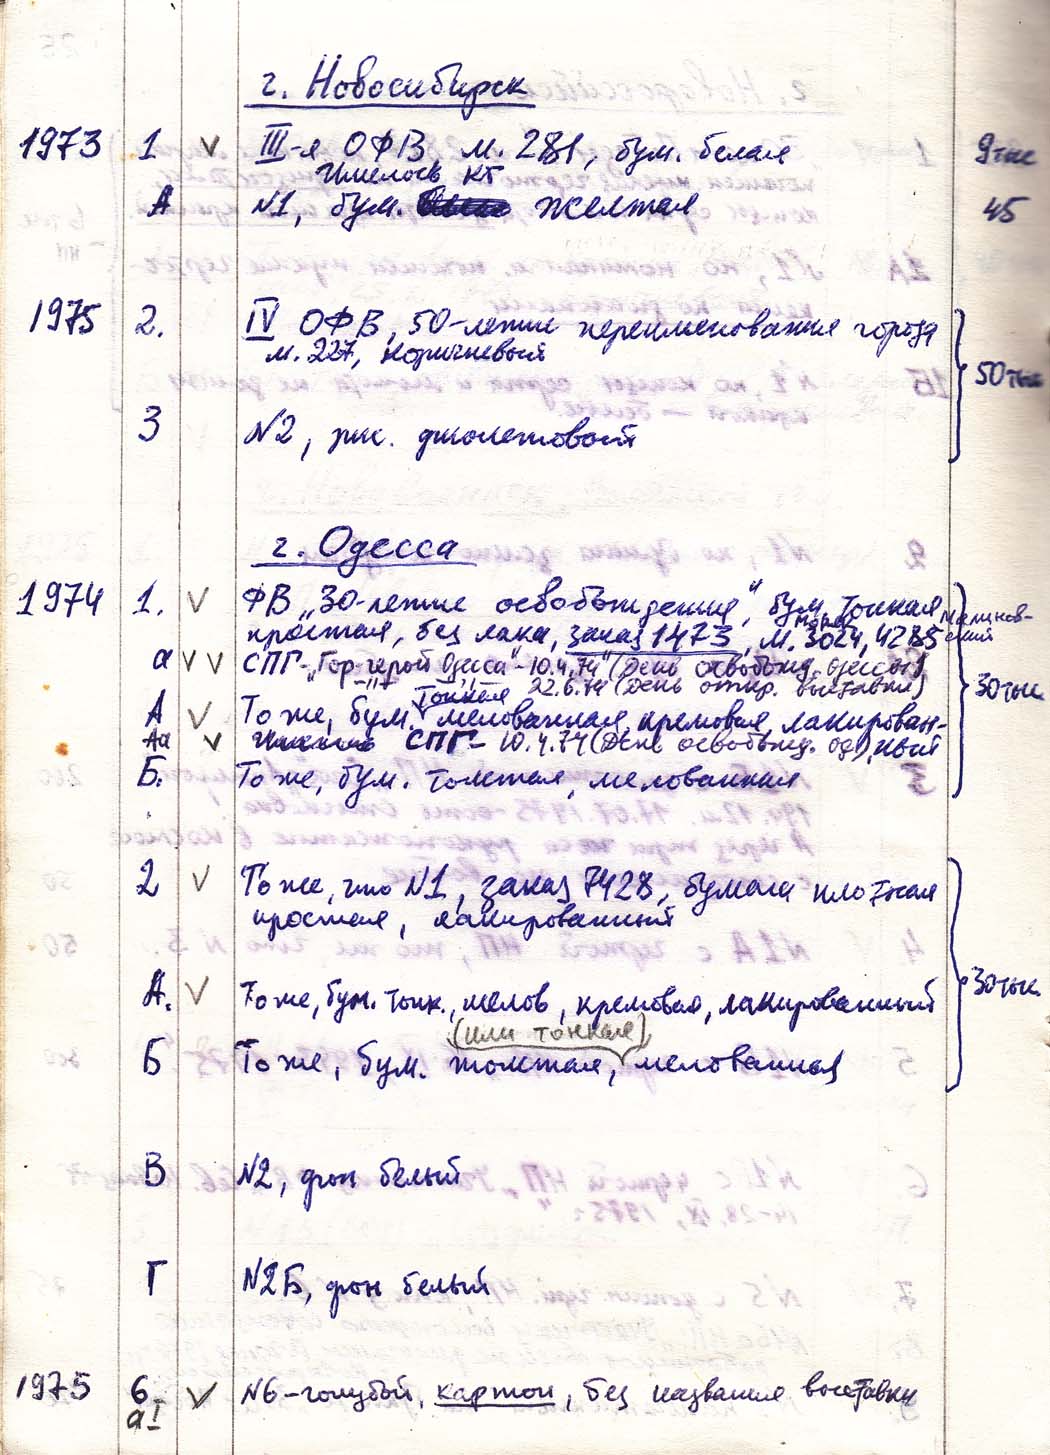 г. Новосибирск
1973 1 V III-я ОФВ, м. 281, бум. белая 9 тыс
Имелось КБ
А №1, бум. желтая 45
1975 2. IV ОФВ, 50-летие переименования города
м. 227, коричневый 50 тыс
3 №2, фиолетовый
г. Одесса
1974 1. V ФВ „30-летие освобождения", бум. тонкая
простая, без лака, заказ 1473, м. 3024, 4285
а V V СПГ-„Гор-герой Одесса"-10.4.74" (День освобожд. Одессы)
22.6.74 (День откр. выставки) 30 тыс.
тонкая
А V То же, бум. мелованная, кремовая, лакирован-
Аа V СПГ- 10.4.74 (День освобожд. Од), ный
Б. То же, бум. толстая, мелованная
2 V То же, что №1, заказ 7428, бумага плотная
простая, лакированный
А. V То же, бум. тонк., мелов, кремовая, лакированный 30 тыс.
(или тонкая)
Б То же, бум. толстая, мелованная
В №2, фон белый
Г №2Б, фон белый
1975 6 V №6-голубой, картон, без названия выставки
аI